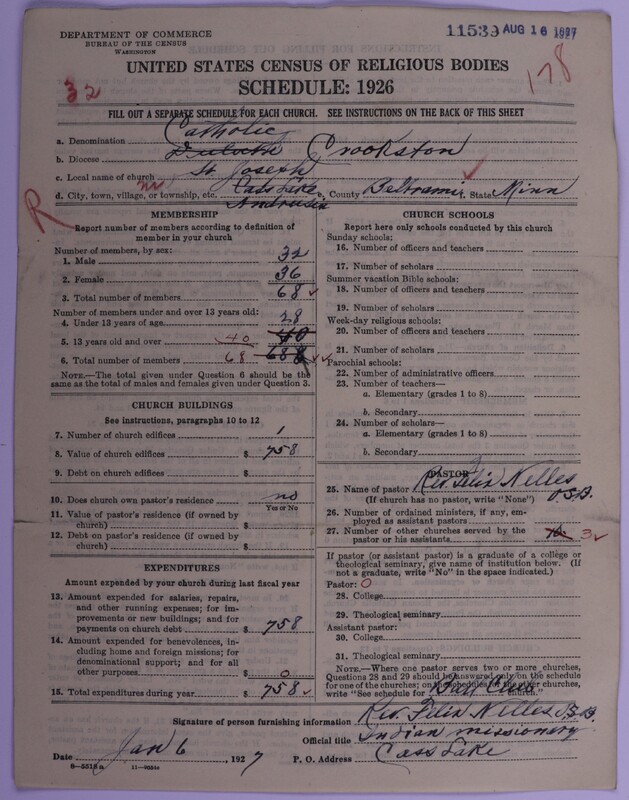 DEPARTMENT OF COMMERCE
BUREAU OF THE CENSUS
WASHINGTON
11539 AUG 16 1927
UNITED STATES CENSUS OF RELIGIOUS BODIES
SCHEDULE: 1926
32
178
FILL OUT A SEPARATE SCHEDULE FOR EACH CHURCH. SEE INSTRUCTIONS ON THE BACK OF THIS SHEET
a. Denomination Catholic
b. Diocese Duluth Crookston
c. Local name of church St Joseph
d. City, town, village, or township, etc. Cass Lake e. County Beltrami f. State Minn
R
MEMBERSHIP
Report number of members according to definition of
member in your church
Number of members, by sex:
1. Male 32
2. Female 36
3. Total number of members 68
Number of members under and over 13 years old:
4. Under 13 years of age 28
5. 13 years old and over 40 40
6. Total number of members 68 68
NOTE.—The total given under Question 6 should be the
same as the total of males and females given under Question 3.
CHURCH BUILDINGS
See instructions, paragraphs 10 to 12
7. Number of church edifices 1
8. Value of church edifices $ 758
9. Debt on church edifices $
10. Does church own pastor's residence no
Yes or No
11. Value of pastor's residence (if owned by
church) $
12. Debt on pastor's residence (if owned by
church) $
EXPENDITURES
Amount expended by your church during last fiscal year
13. Amount expended for salaries, repairs,
and other running expenses; for im-
provements or new buildings; and for
payments on church debt $ 758
14. Amount expended for benevolences, in-
cluding home and foreign missions; for
denominational support; and for all
other purposes $ 0
15. Total expenditures during year $ 758
CHURCH SCHOOLS
Report here only schools conducted by this church
Sunday schools:
16. Number of officers and teachers
17. Number of scholars
Summer vacation Bible schools:
18. Number of officers and teachers
19. Number of scholars
Week-day religious schools:
20. Number of officers and teachers
21. Number of scholars
Parochial schools:
22. Number of administrative officers
23. Number of teachers—
a. Elementary (grades 1 to 8)
b. Secondary
24. Number of scholars—
a. Elementary (grades 1 to 8)
b. Secondary
PASTOR
25. Name of pastor Rev. Felix Nelles
(If church has no pastor, write "None") O.S.B.
26. Number of ordained ministers, if any, em-
ployed as assistant pastors
27. Number of other churches served by the
pastor or his assistants 3
If pastor (or assistant pastor) is a graduate of a college or
theological seminary, give name of institution below. (If
not a graduate, write "No" in the space indicated.)
Pastor: O
28. College
29. Theological seminary
Assistant pastor:
30. College
31. Theological seminary
NOTE.—Where one pastor serves two or more churches,
Questions 28 and 29 should be answered only on the schedule
for one of the churches; on the schedules for the other churches,
write "See schedule for Ball Club church."
Signature of person furnishing information Rev. Felix Nelles O.S.B.
Official title Indian missionery
Date Jan 6, 1927 P. O. Address Cass Lake
8—5518a 11—9024a